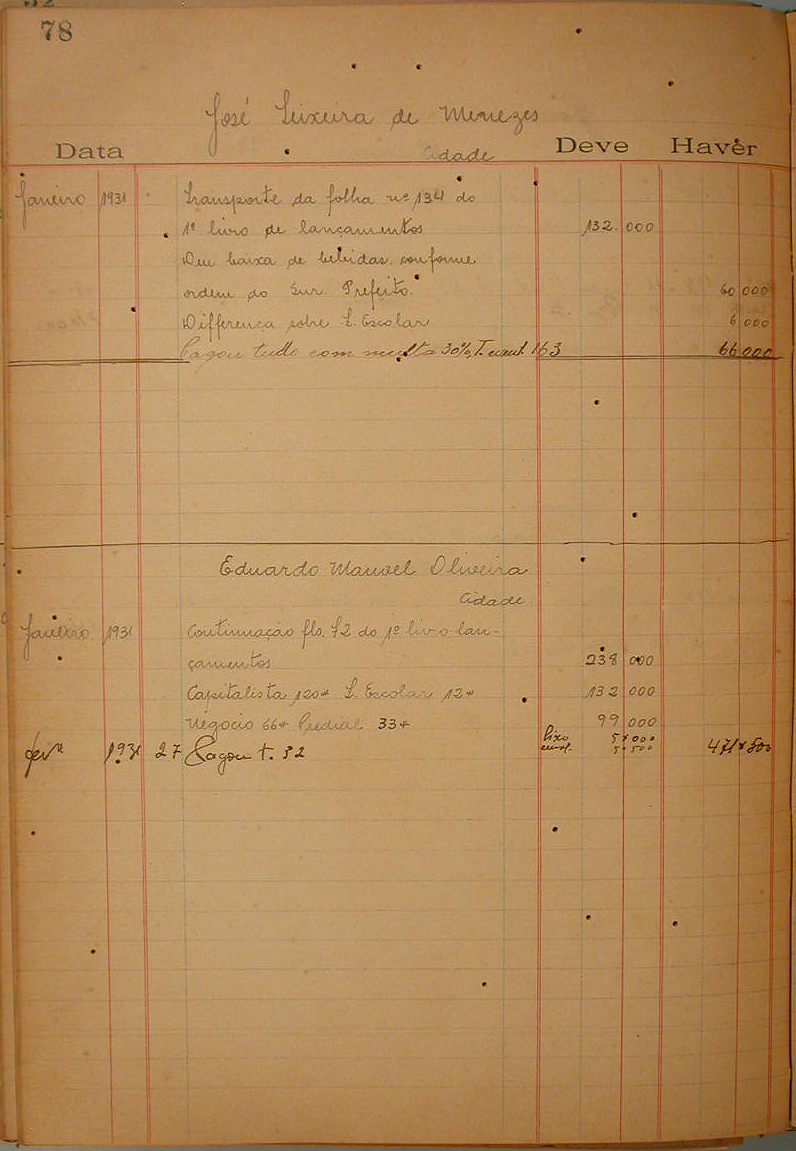 78
José Teixeira de Menezes
Data cidade Deve Havêr
Janeiro 1931 Transporte da folha nº 134 do
1º livro de lançamentos 132 000
Deu baixa de bebidas conforme
ordem do Snr. Prefeito. 60 000
Differença sobre T. Escolar 6 000
Pagou tudo com multa 30%, T. 163 66 000
Eduardo Manoel Oliveira
Cidade
Janeiro 1931 Continuação fls. 72 do 1º livro lan-
çamentos 238 000
Capitalista 120$ T. Escolar 12$ 132 000
Negocio 66$ Predial 33$ 99 000
lixo 5$000
fevº 1931 27 Pagou t. 32 5$500 471$500